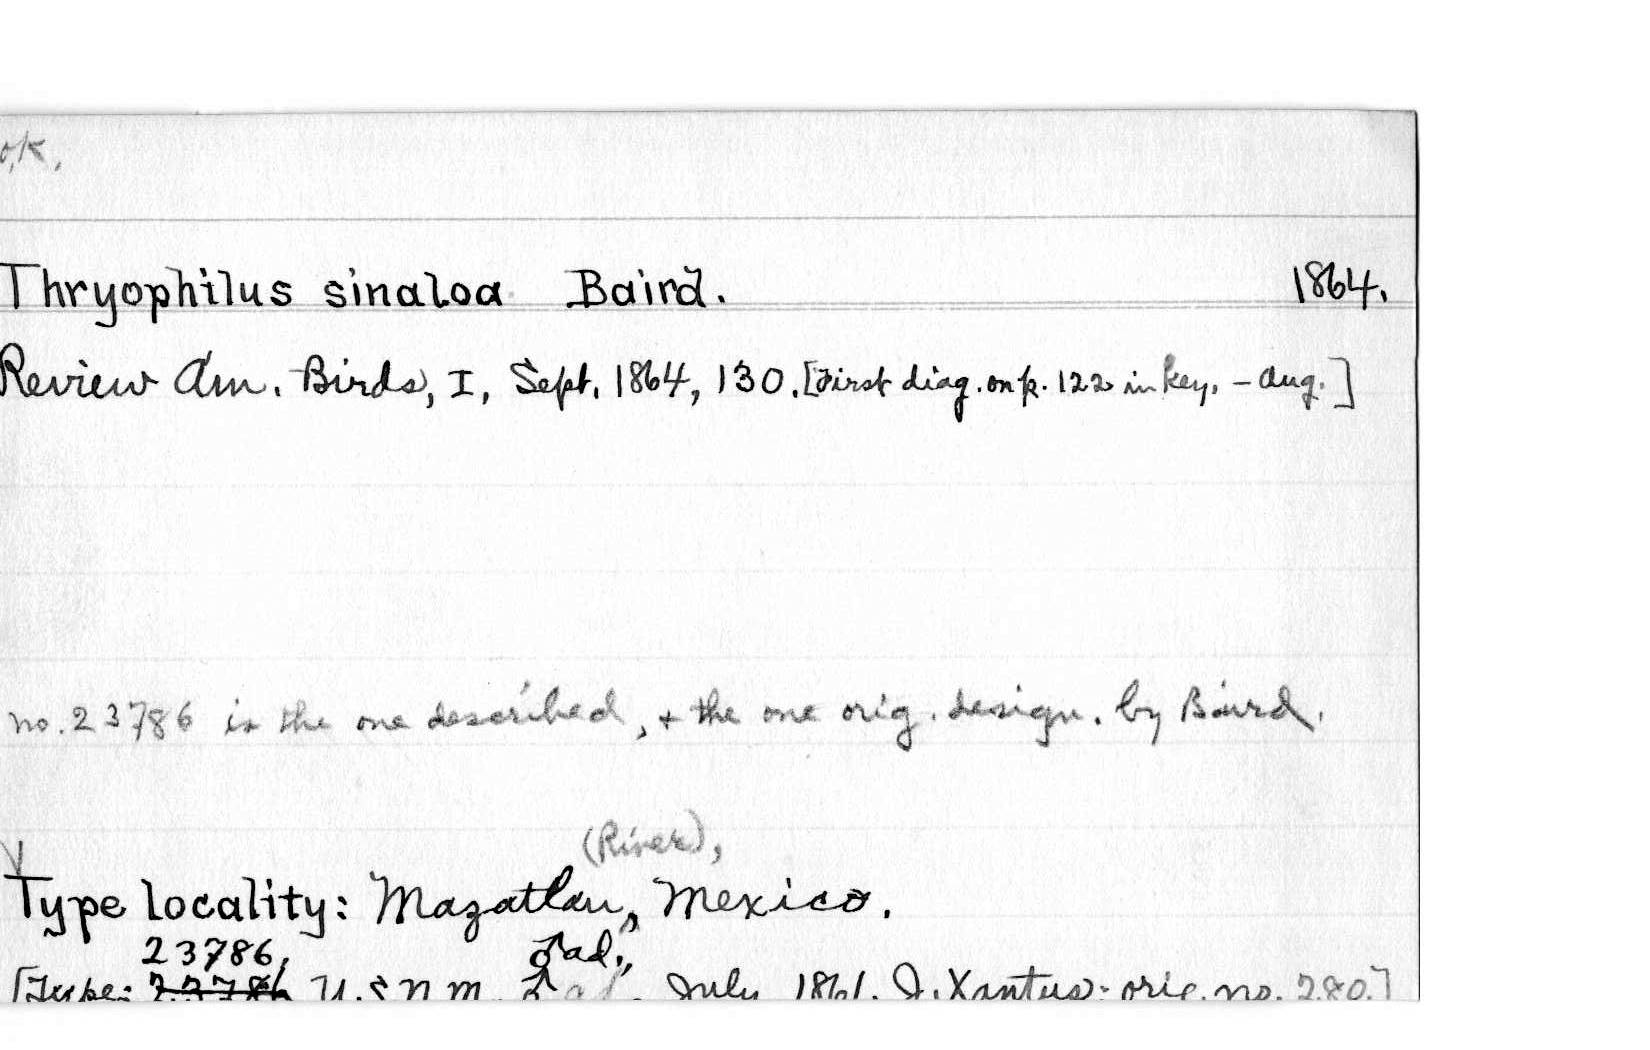 o.k.
Thryophilus sinaloa Baird. 1864.
Review Am. Birds, I, Sept. 1864, 130. [First diag. on p. 122 in key, - Aug.]
no. 23786 is the one described, + the one orig. design. by Baird.
(River),
Type locality: Mazatlan, Mexico.
23786, ♂ad.,
[Type: 23786 U.S.N.M. ♂ ad. July 1861. J. Xantus: orig. no. 280.]